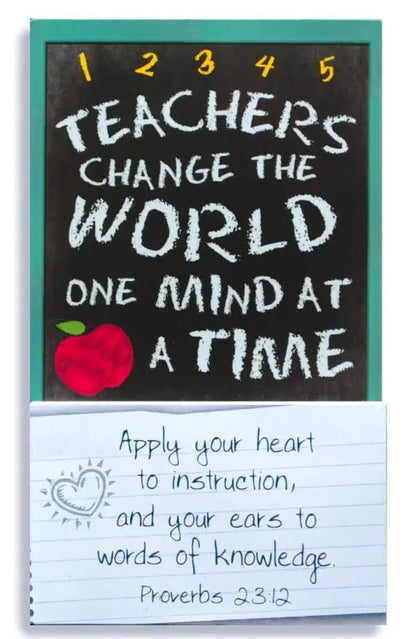 1 2 3 4 5
TEACHERS
CHANGE THE
WORLD
ONE MIND AT
A TIME
Apply your heart
to instruction,
and your ears to
words of knowledge.
Proverbs 23:12